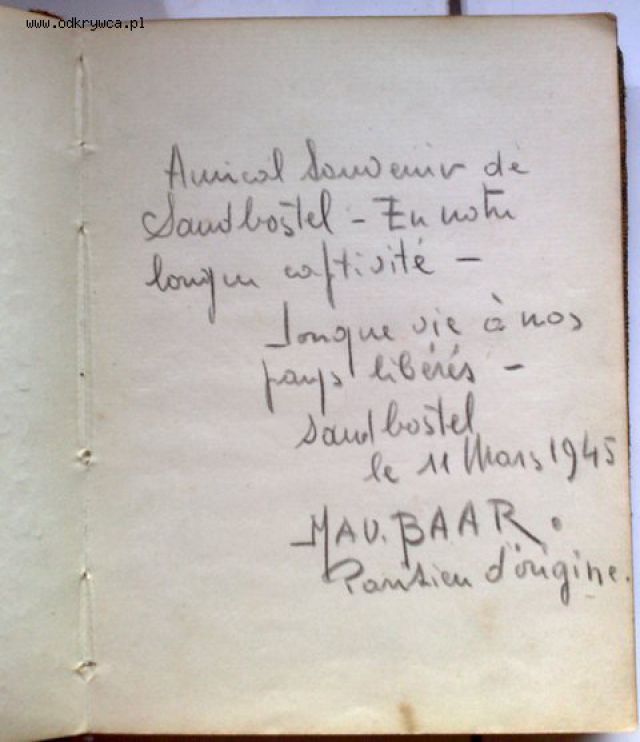 www.odkrywca.pl
Amical Souvenir de
Sandbostel - En notre
longue captivité -
Longue vie à nos
pays libérés -
Sandbostel
le 11 Mars 1945
MAU. BAAR.
Parisien d'origine.